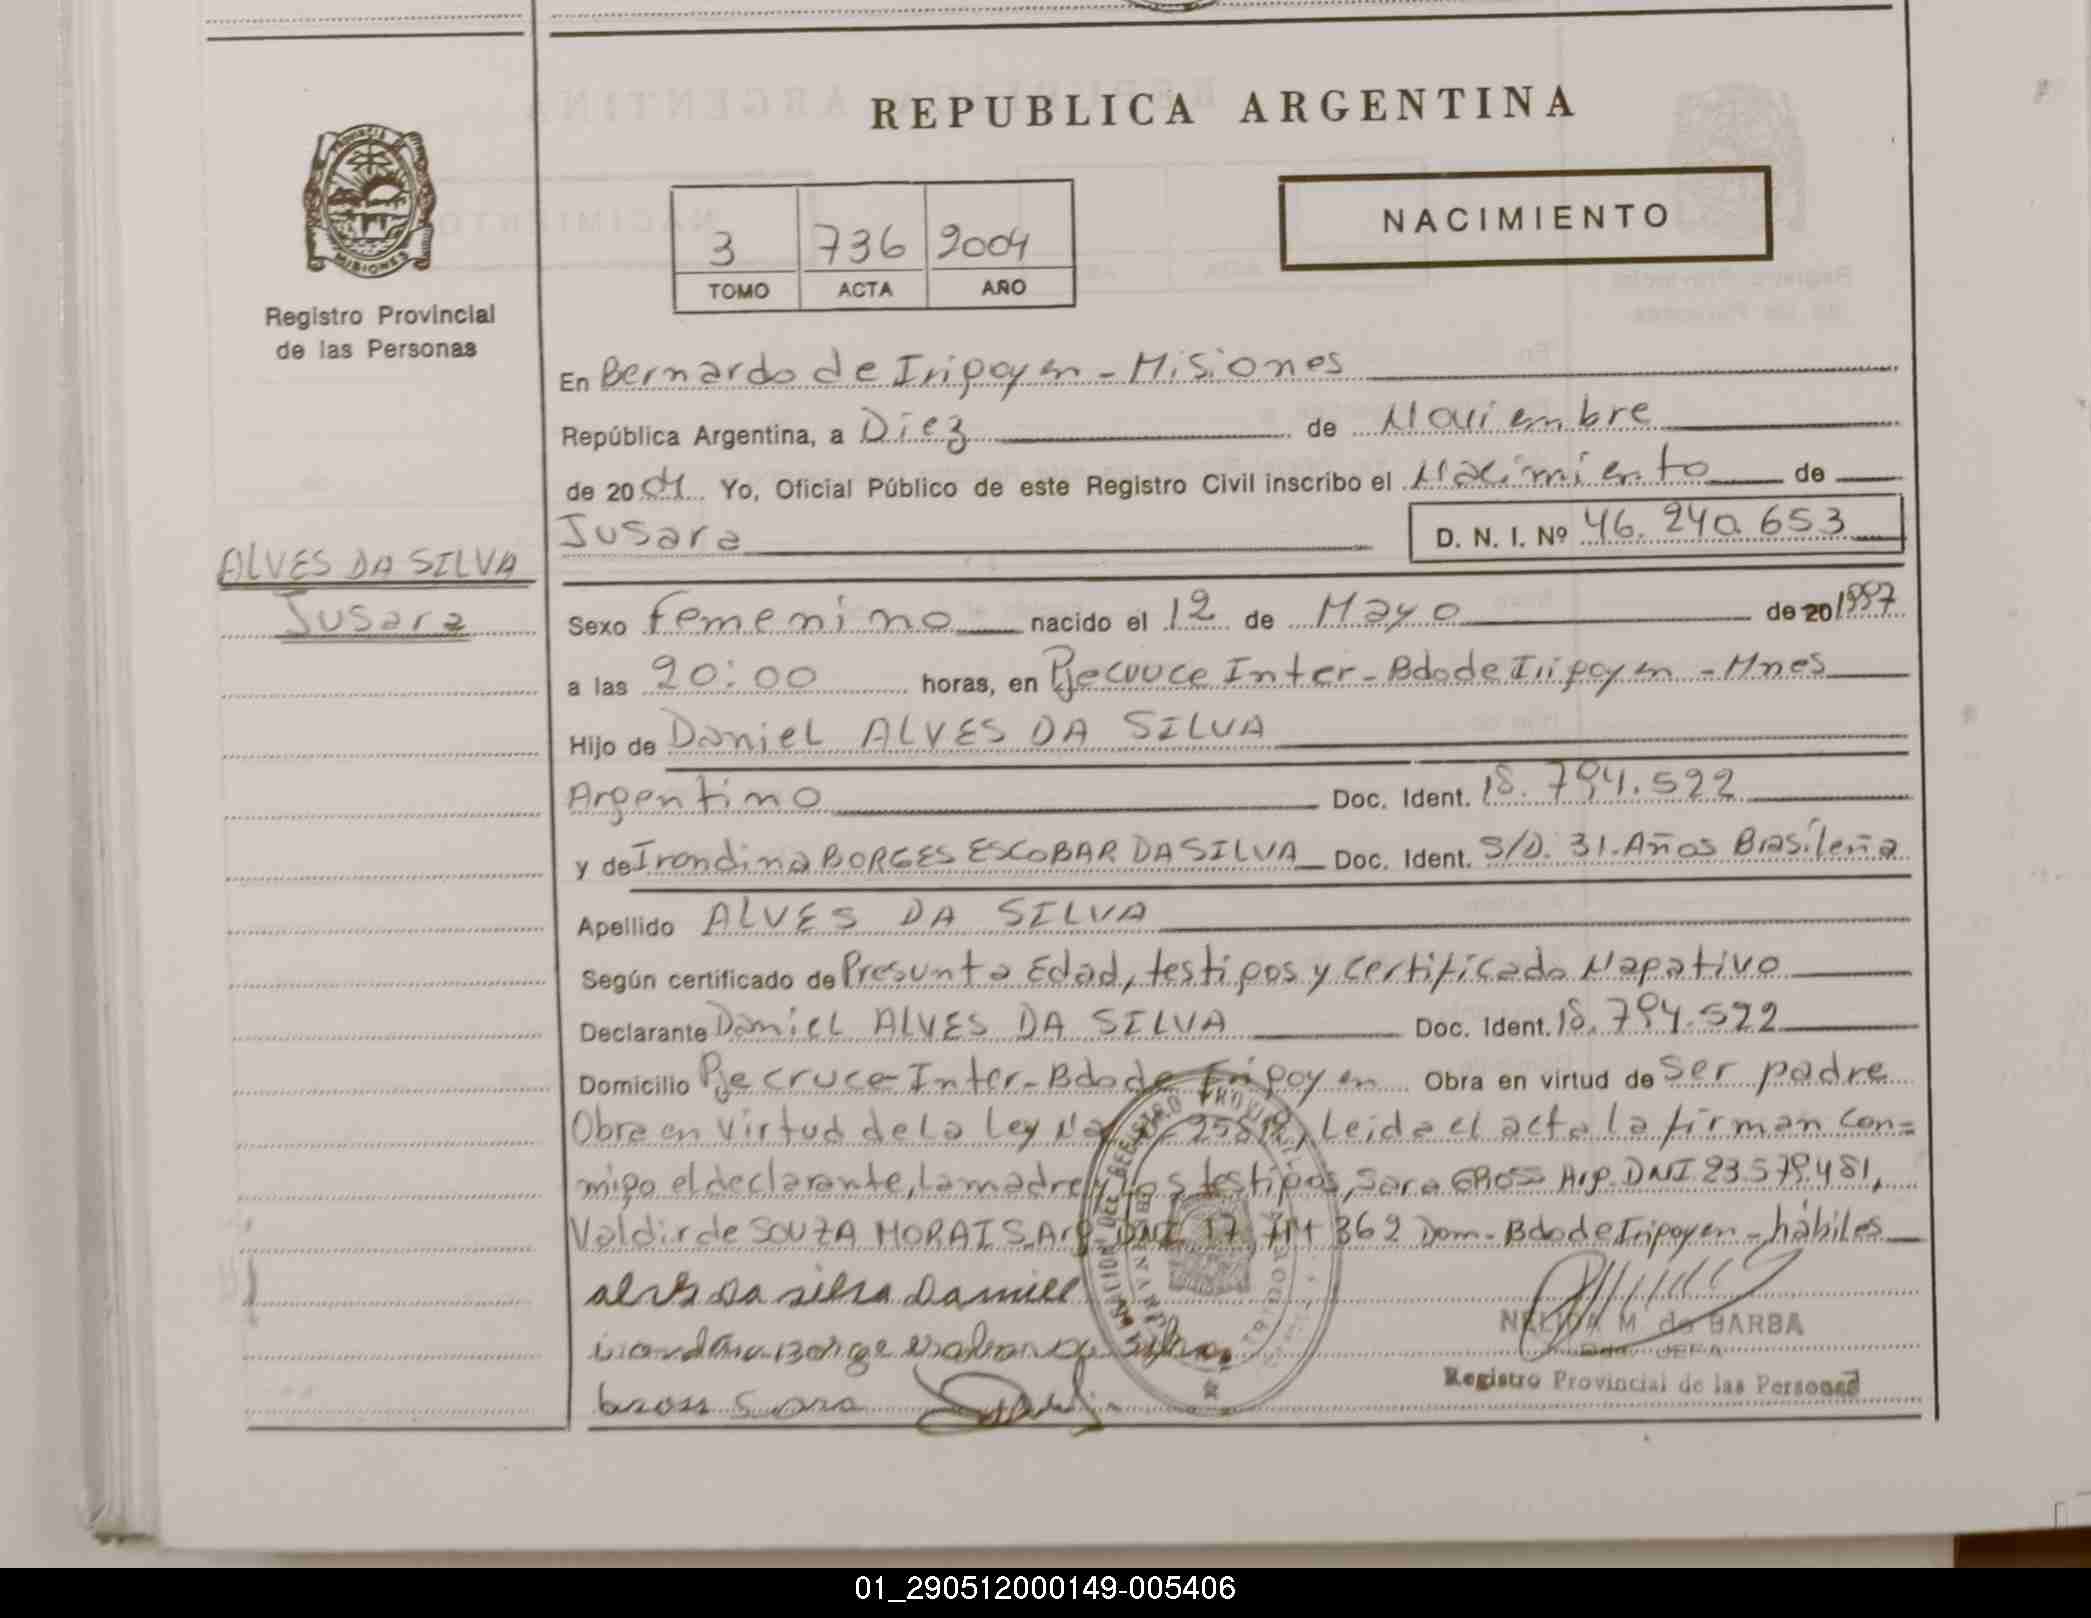 REPUBLICA ARGENTINA
PROVINCIA
MISIONES
Registro Provincial
de las Personas
3 736 2004
TOMO ACTA AÑO
NACIMIENTO
En Bernardo de Irigoyen - Misiones
República Argentina, a Diez de Noviembre
de 2004 Yo, Oficial Público de este Registro Civil inscribo el Nacimiento de
Jusara D. N. I. Nº 46.240.653
ALVES DA SILVA
Jusara
Sexo Femenino nacido el 12 de Mayo de 20 1997
a las 20:00 horas, en Pje cruce Inter - Bdo de Irigoyen - Mnes
Hijo de Daniel ALVES DA SILVA
Argentino Doc. Ident. 18.794.522
y de Irondina BORGES ESCOBAR DA SILVA Doc. Ident. S/D. 31 Años Brasileña
Apellido ALVES DA SILVA
Según certificado de Presunta Edad, testigos y certificado Negativo
Declarante Daniel ALVES DA SILVA Doc. Ident. 18.794.522
Domicilio Pje cruce Inter - Bdo de Irigoyen Obra en virtud de Ser padre
Obra en virtud de la Ley Leida el acta la firman con=
migo el declarante, la madre y los testigos, Sara GROSS Arg. DNI 23.579.481,
Valdir de SOUZA MORAIS Arg DNI 17 362 Dom - Bdo de Irigoyen - hábiles
alves Da silva Daniel
NELIDA M. de BARBA
JEFA
Registro Provincial de las Personas
Gross Sara
01_290512000149-005406